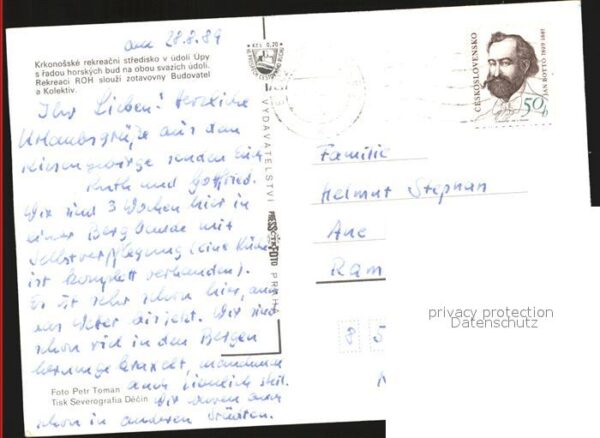 den 28.8.89
Krkonošské rekreační středisko v údolí Úpy
s řadou horských bud na obou svazích údolí.
Rekreaci ROH slouží zotavovny Budovatel
a Kolektiv.
Ihr Lieben! Herzliche
Urlaubsgrüße aus dem
Riesengebirge senden Euch
Ruth und Gottfried.
Wir sind 3 Wochen hier in
einer Bergbaude mit
Selbstverpflegung (eine Küche
ist komplett vorhanden).
Es ist sehr schön hier, auch
das Wetter
Wir sind
schon viel in den Bergen
auch ziemlich steil.
Wir waren auch
schon in anderen Städten.
Foto Petr Toman
Tisk Severografia Děčín
Kčs 0,20
VYDAVATELSTVÍ
PRESSFOTO
PRAHA
ČESKOSLOVENSKO
JÁN BOTTO 1829 1881
50 h
Familie
Helmut Stephan
Aue
RAM
8 5
privacy protection
Datenschutz